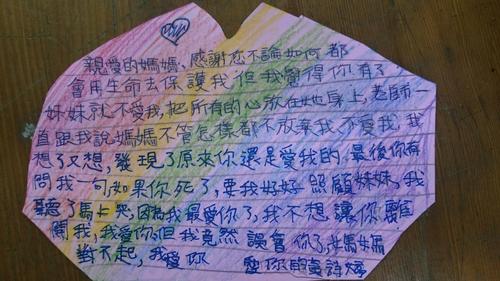 親愛的媽媽、感謝您不論如何都
會用生命去保護我但我覺得你有了
妹妹就不愛我,把所有的心放在她身上,老師一
直跟我說媽媽不管怎樣都不放棄我、不愛我,我
想了又想,發現了原來你還是愛我的.最後你有
問我一句如果你死了,要我好好照顧妹妹,我
聽了馬上哭,因為我最愛你了,我不想讓你離
開我,我愛你,但我竟然誤會你了,媽媽
對不起,我愛你 愛你的 詩